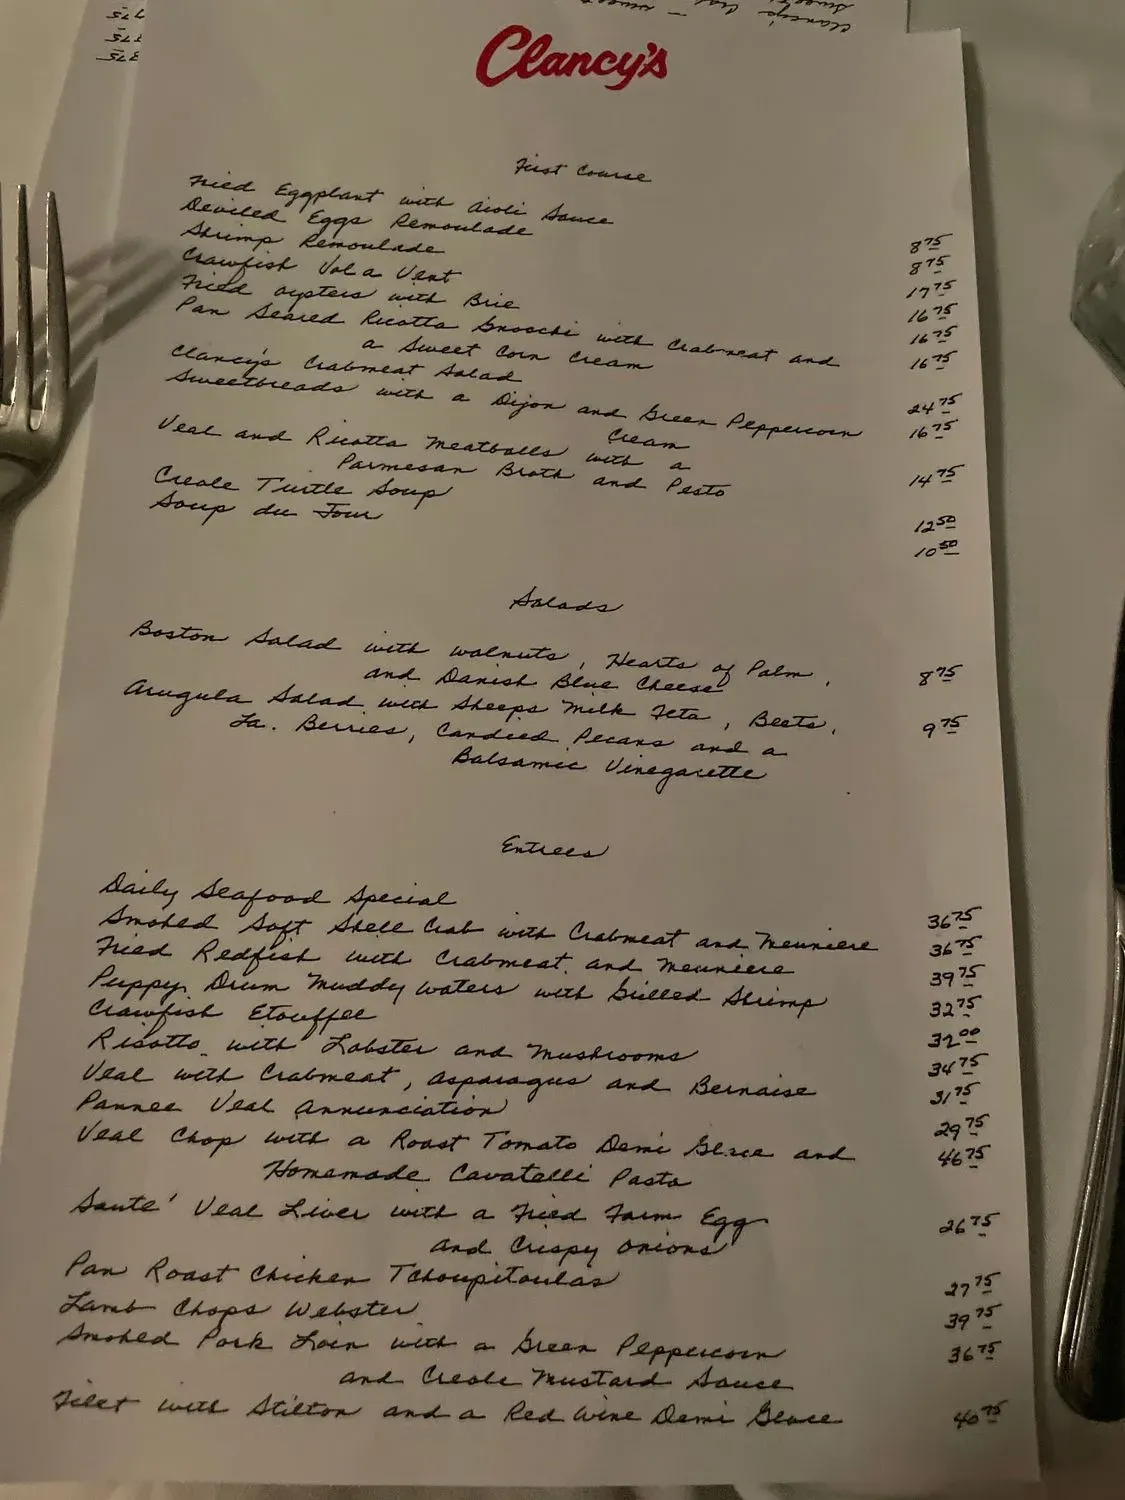 Clancy's
First Course
Fried Eggplant with Aioli Sauce 8 75
Deviled Eggs Remoulade 8 75
Shrimp Remoulade 17 75
Crawfish Vol a Vent 16 75
Fried oysters with Brie 16 75
Pan Seared Ricotta Gnocchi with Crabmeat and 16 75
a Sweet Corn Cream
Clancy's Crabmeat Salad 24 75
Sweetbreads with a Dijon and Green Peppercorn 16 75
Cream
Veal and Ricotta Meatballs with a 14 75
Parmesan Broth and Pesto
Creole Turtle Soup 12 50
Soup du Jour 10 50
Salads
Boston Salad with walnuts, Hearts of Palm, 8 75
and Danish Blue Cheese
Arugula Salad with Sheeps Milk Feta, Beets, 9 75
La. Berries, Candied Pecans and a
Balsamic Vinegarette
Entrees
Daily Seafood Special 36 75
Smoked Soft Shell Crab with Crabmeat and Meuniere 36 75
Fried Redfish with Crabmeat and Meuniere 39 75
Puppy Drum Muddy Waters with Grilled Shrimp 32 75
Crawfish Etouffee 32 00
Risotto with Lobster and Mushrooms 34 75
Veal with Crabmeat, Asparagus and Bernaise 31 75
Pannee Veal Annunciation 29 75
Veal Chop with a Roast Tomato Demi Glace and 46 75
Homemade Cavatelli Pasta
Saute' Veal Liver with a Fried Farm Egg 26 75
and Crispy Onions
Pan Roast Chicken Tchoupitoulas 27 75
Lamb Chops Webster 39 75
Smoked Pork Loin with a Green Peppercorn 36 75
and Creole Mustard Sauce
Filet with Stilton and a Red Wine Demi Glace 40 75